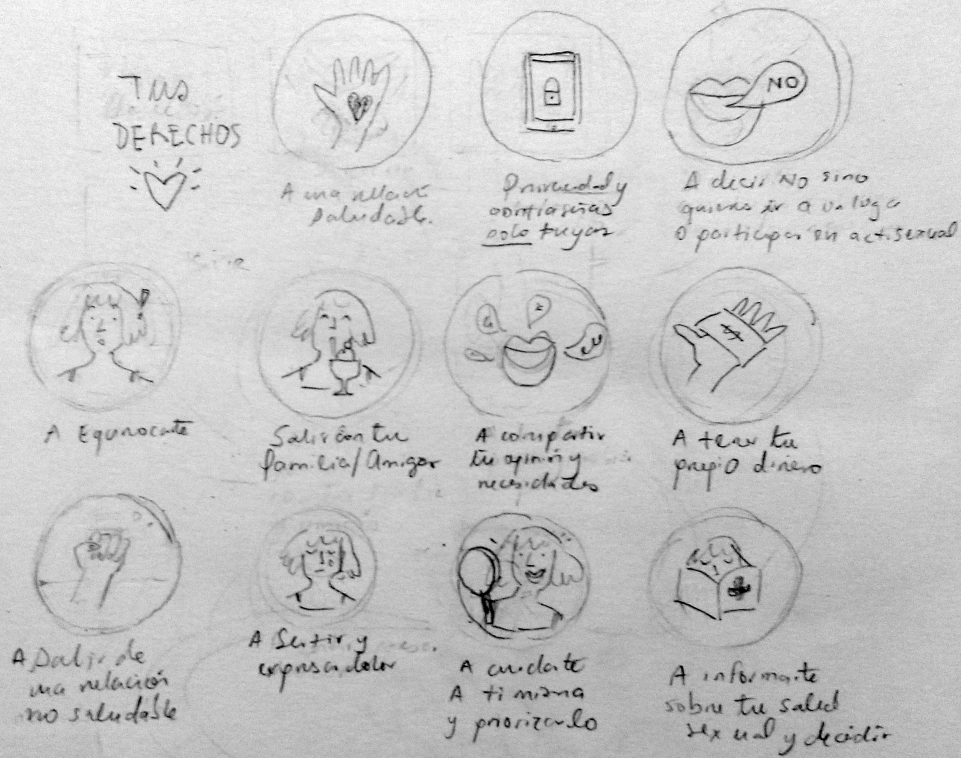 TUS
DERECHOS
A una relació
saludable.
Privacidad y
contraseñas
solo tuyas
NO
A decir NO sino
quieres ir a un luga
o participar en act sexual
A Equivocarte
Salir con tu
familia/Amigos
A compartir
tu opinión y
necesidades
A tener tu
propio dinero
A Salir de
una relación
no saludable
A Sentir y
expresar dolor
A cuidarte
A ti misma
y priorizarlo
A informarte
sobre tu salud
sexual y decidir